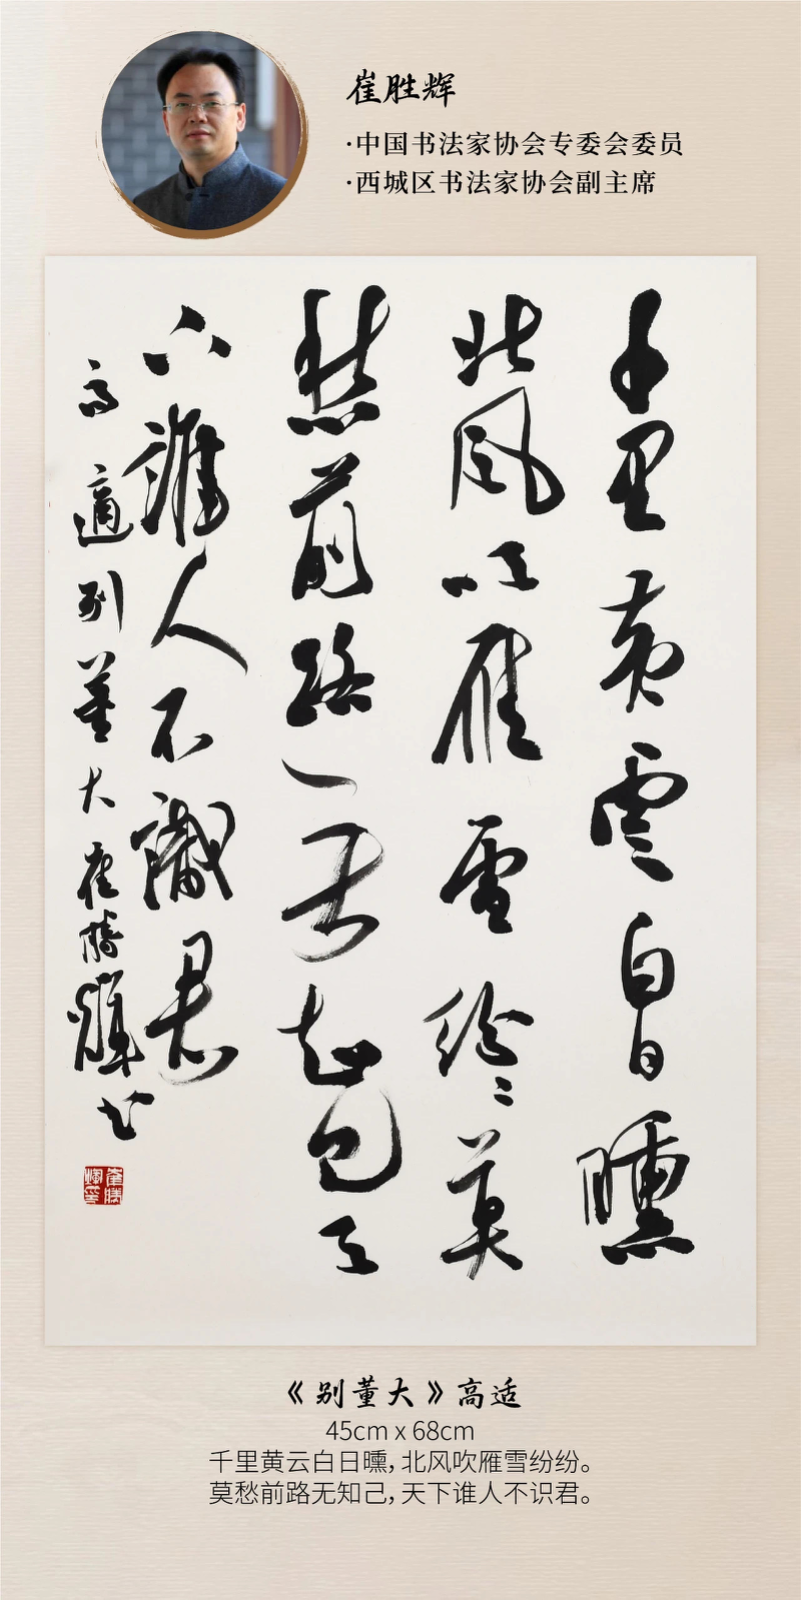 崔胜辉
·中国书法家协会专委会委员
·西城区书法家协会副主席
千里黄云白日曛
北风吹雁雪纷纷莫
愁前路无知己天
下谁人不識君
高適别董大崔勝輝书
《别董大》高适
45cm x 68cm
千里黄云白日曛，北风吹雁雪纷纷。
莫愁前路无知己，天下谁人不识君。